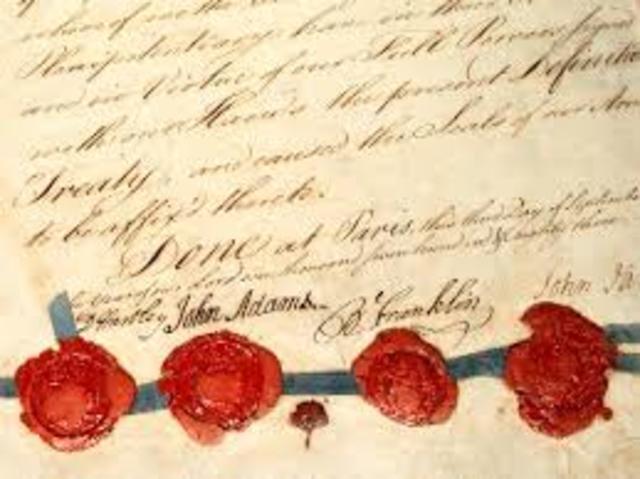 Plenipotentiary
and in Virtue of our Full Powers
with our Hands the present Definitive
Treaty, and caused the Seals of our Arms
to be affix'd thereto.
Done at Paris, this third Day of September
in the year of our Lord one thousand seven hundred & Eighty three
D Hartley John Adams B Franklin John Ja